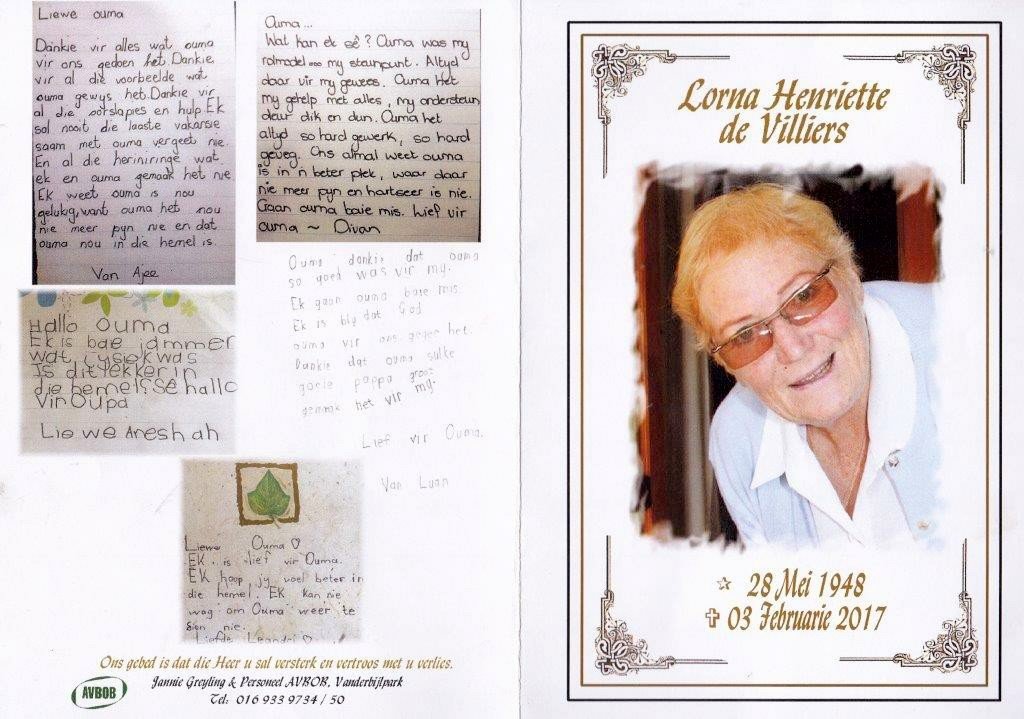 Liewe ouma
Dankie vir alles wat ouma
vir ons gedoen het. Dankie
vir al die voorbeelde wat
ouma gewys het. Dankie vir
al die oorslapies en hulp. Ek
sal nooit die laaste vakansie
saam met ouma vergeet nie.
En al die heriniringe wat
ek en ouma gemaak het nie
Ek weet ouma is nou
gelukig, want ouma het nou
nie meer pyn nie en dat
ouma nou in die hemel is.
Van Ajee
Ouma...
Wat kan ek sê? Ouma was my
rolmodel my steunpunt. Altyd
daar vir my gewees. Ouma het
my gehelp met alles, my ondersteun
deur dik en dun. Ouma het
altyd so hard gewerk, so hard
geveg. Ons almal weet ouma
is in 'n beter plek, waar daar
nie meer pyn en hartseer is nie.
Gaan ouma baie mis. Lief vir
ouma ~ Divan
Hallo ouma
Ek is bae jammer
wat jy siek was
Is dit lekker in
die hemel? Sê hallo
Vir Oupa
Liewe Aneshah
Ouma dankie dat ouma
so goed was vir my.
Ek gaan ouma baie mis.
Ek is bly dat God
ouma vir ons gegee het.
Dankie dat ouma sulke
goeie pappa groot
gemaak het vir my.
Lief vir Ouma.
Van Luan
Liewe Ouma ♡
EK is lief vir Ouma.
EK hoop jy voel beter in
die hemel. EK kan nie
wag om Ouma weer te
sien nie.
Liefde Leandri ♡
Ons gebed is dat die Heer u sal versterk en vertroos met u verlies.
Jannie Greyling & Personeel AVBOB, Vanderbijlpark
Tel: 016 933 9734 / 50
AVBOB
Lorna Henriette
de Villiers
☆ 28 Mei 1948
✝ 03 Februarie 2017